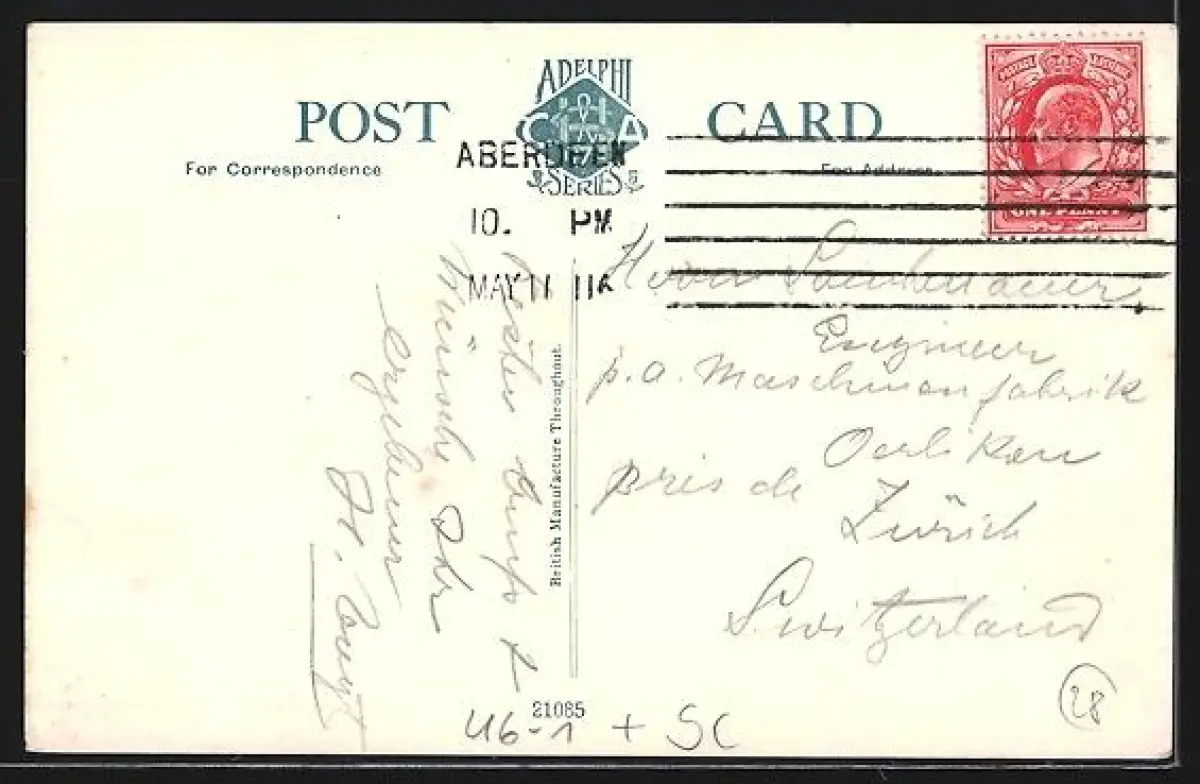 POST CARD
ADELPHI
C H A
SERIES
For Correspondence
For Address
ABERDEEN
10. PM
MAY 11 11
ONE PENNY
Herrn
Engineer
p. a. Maschinenfabrik
Oerlikon
près de
Zürich
Switzerland
Besten Gruss &
Wünsche Ihr
ergebener
British Manufacture Throughout.
21085
46-1 + SC
28